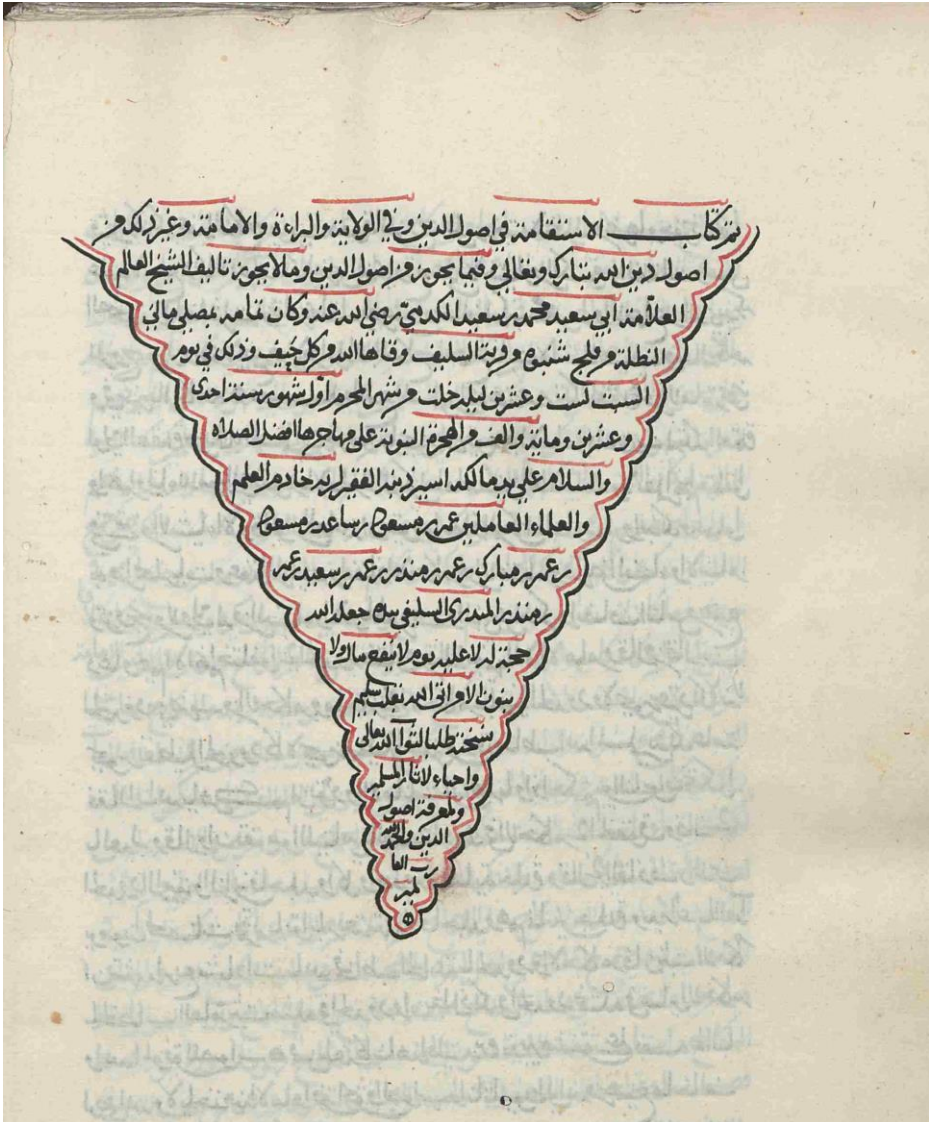 تم كتاب الاستقامة في اصول الدين وفي الولاية والبراءة والامامة وغير ذلك من
اصول دين الله تبارك وتعالى وفيما يجوز من اصول الدين وما لا يجوز تاليف الشيخ العالم
العلامة ابي سعيد محمد بن سعيد الكدمي رضي الله عنه وكان تمامه بمصلى مالي
النطلة من فلج شنبوه من قرية السليف وقاها الله من كل حيف وذلك في يوم
السبت لست وعشرين ليله خلت من شهر المحرم اول شهور سنة احدى
وعشرين ومائة والف من الهجرة النبوية على مهاجرها افضل الصلاة
والسلام على يد مالكه اسير ذنبه الفقير لربه خادم العلم
والعلماء العاملين عمر بن مسعود بن ساعد بن مسعود
بن عمر بن مبارك بن عمر بن منذر بن عمر بن سعيد بن عمر
بن منذر المنذري السليفي بيده جعله الله
حجة له لا عليه يوم لا ينفع مال ولا
بنون الا من اتى الله بقلب سليم
نسخته طلبا لثواب الله تعالى
واحياء لاثار المسلمين
ولمعرفة اصول
الدين والحمد لله
رب العا
لمين